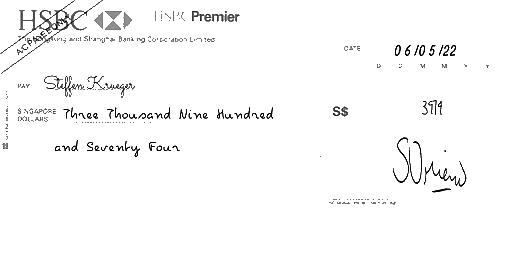 HSBC HSBC Premier
The Hongkong and Shanghai Banking Corporation Limited
DATE 06/05/22
D D M M Y Y
PAY Steffen Krueger
SINGAPORE DOLLARS Three Thousand Nine Hundred
S$ 3974
and Seventy Four